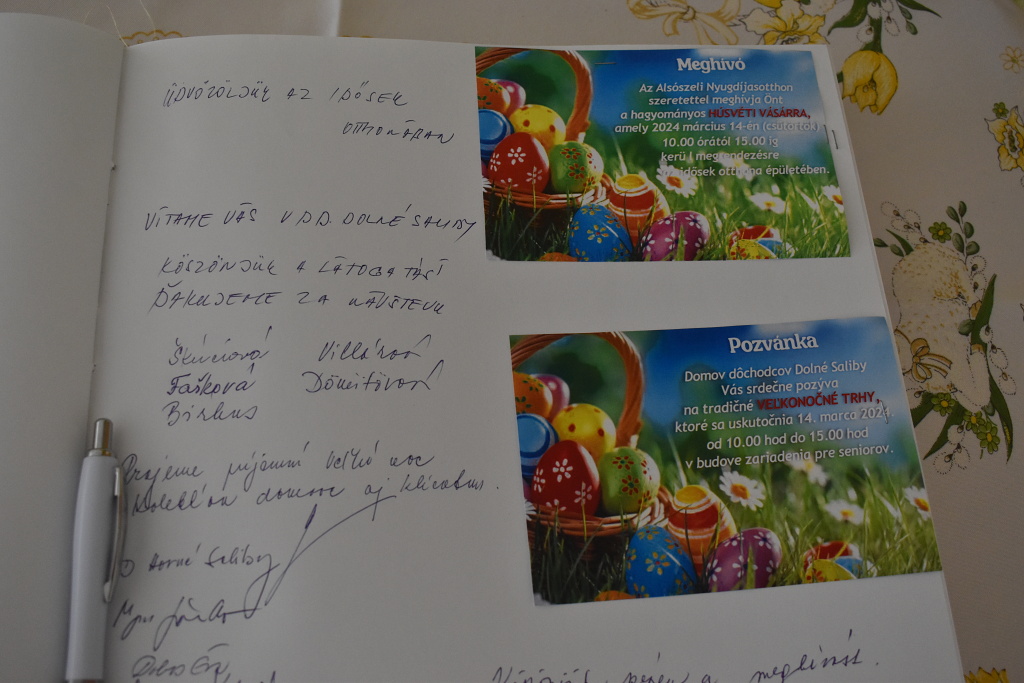 ÜDVÖZÖLJÜK AZ IDŐSEK
OTTHONÁBAN
VÍTAME VÁS V D.D. DOLNÉ SALIBY
KÖSZÖNJÜK A LÁTOGATÁST
ĎAKUJEME ZA NÁVŠTEVU
Villárová
Fašková
Meghívó
Az Alsószeli Nyugdíjasotthon
szeretettel meghívja Önt
a hagyományos HÚSVÉTI VÁSÁRRA,
amely 2024 március 14-én (csütörtök)
10.00 órától 15.00 ig
kerü l megrendezésre
idősek otthona épületében.
Pozvánka
Domov dôchodcov Dolné Saliby
Vás srdečne pozýva
na tradičné VEĽKONOČNÉ TRHY,
ktoré sa uskutočnia 14. marca 2024.
od 10.00 hod do 15.00 hod
v budove zariadenia pre seniorov.
Prajeme príjemnú Veľkú noc
domova aj klientom.
Horné Saliby
a meghívást.